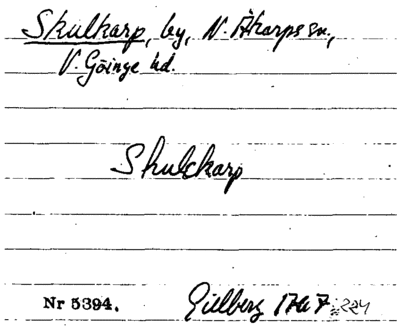 Skulkarp, by, N. Åkarps sn.,
V. Göinge hd.
Skulckarp
Nr 5394. Gillberg 1767: 224